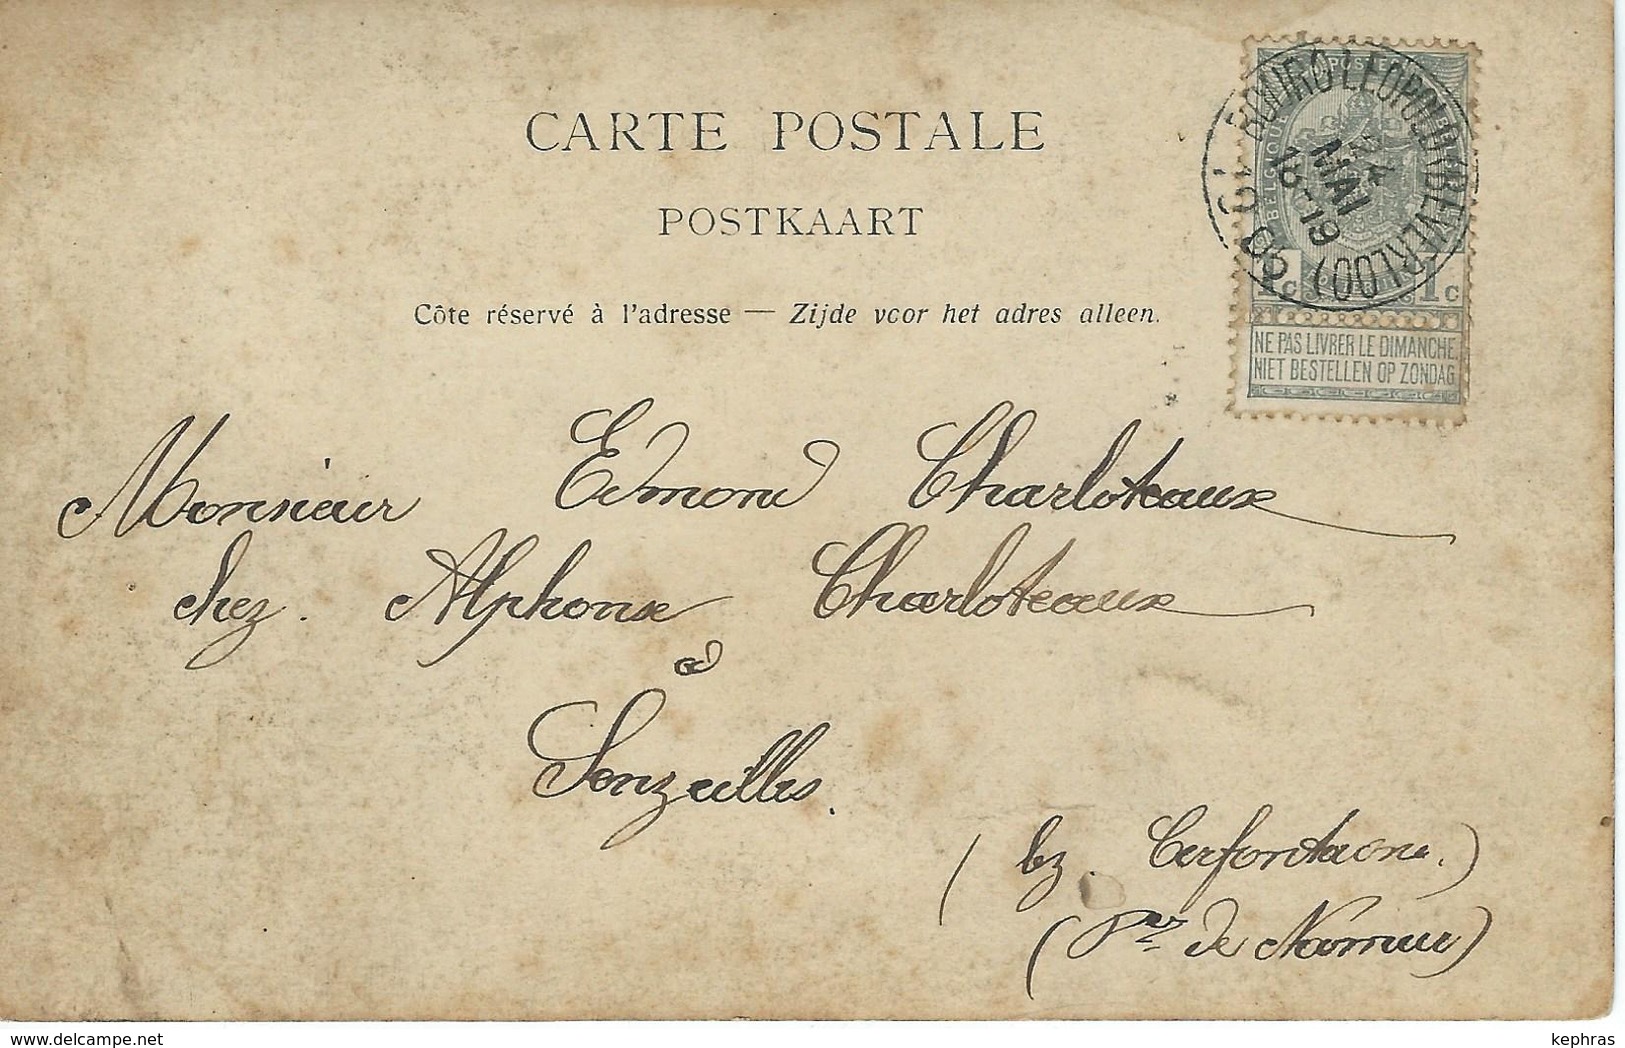 CARTE POSTALE
POSTKAART
Côte réservé à l'adresse — Zijde voor het adres alleen.
BOURG-LÉOPOLD (BEVERLOO)
MAI
18-19
BELGIQUE
1c 1c
NE PAS LIVRER LE DIMANCHE.
NIET BESTELLEN OP ZONDAG
Monsieur Edmond Charloteaux
chez Alphonse Charloteaux
à
Senzeilles.
(lez Cerfontaine.)
(Pce de Namur)
delcampe.net
kephras